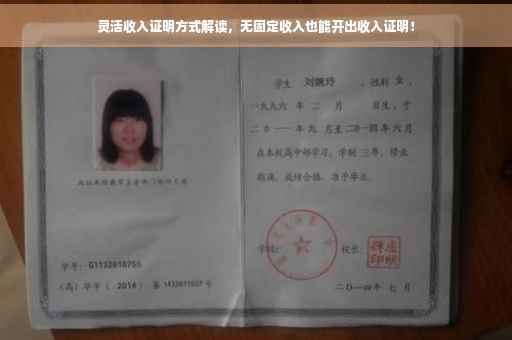 灵活收入证明方式解读，无固定收入也能开出收入证明！
学生 刘婉玲 ，性别 女 ，
一九九六 年 二 月 日生，于
二〇一一 年 九 月至 二〇一四 年 六 月
在本校高中部学习，学制 三 年，修业
期满，成绩合格，准予毕业。
学号： G1132010755
（高）毕字（ 2014 ）第 1432011027 号
学校：
校长：
二〇一四年 七 月